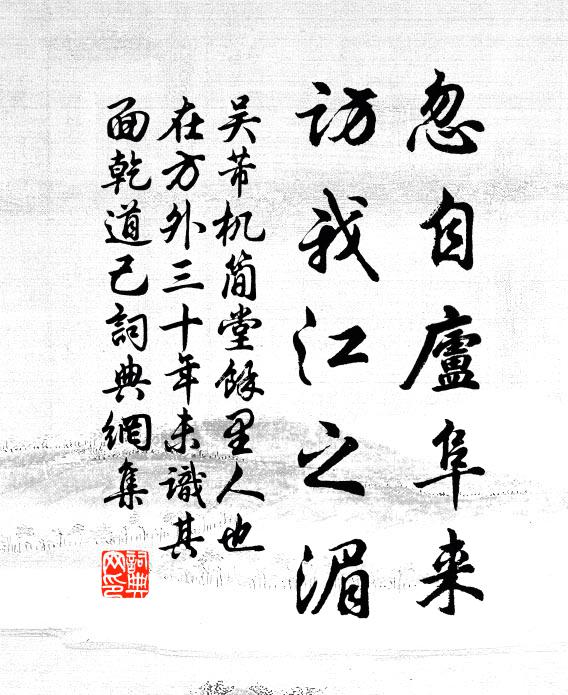 忽自廬阜来
訪我江之湄
吴芾机简堂餘里人也
在方外三十年未識其
面乾道己詞典網集
詞典網印